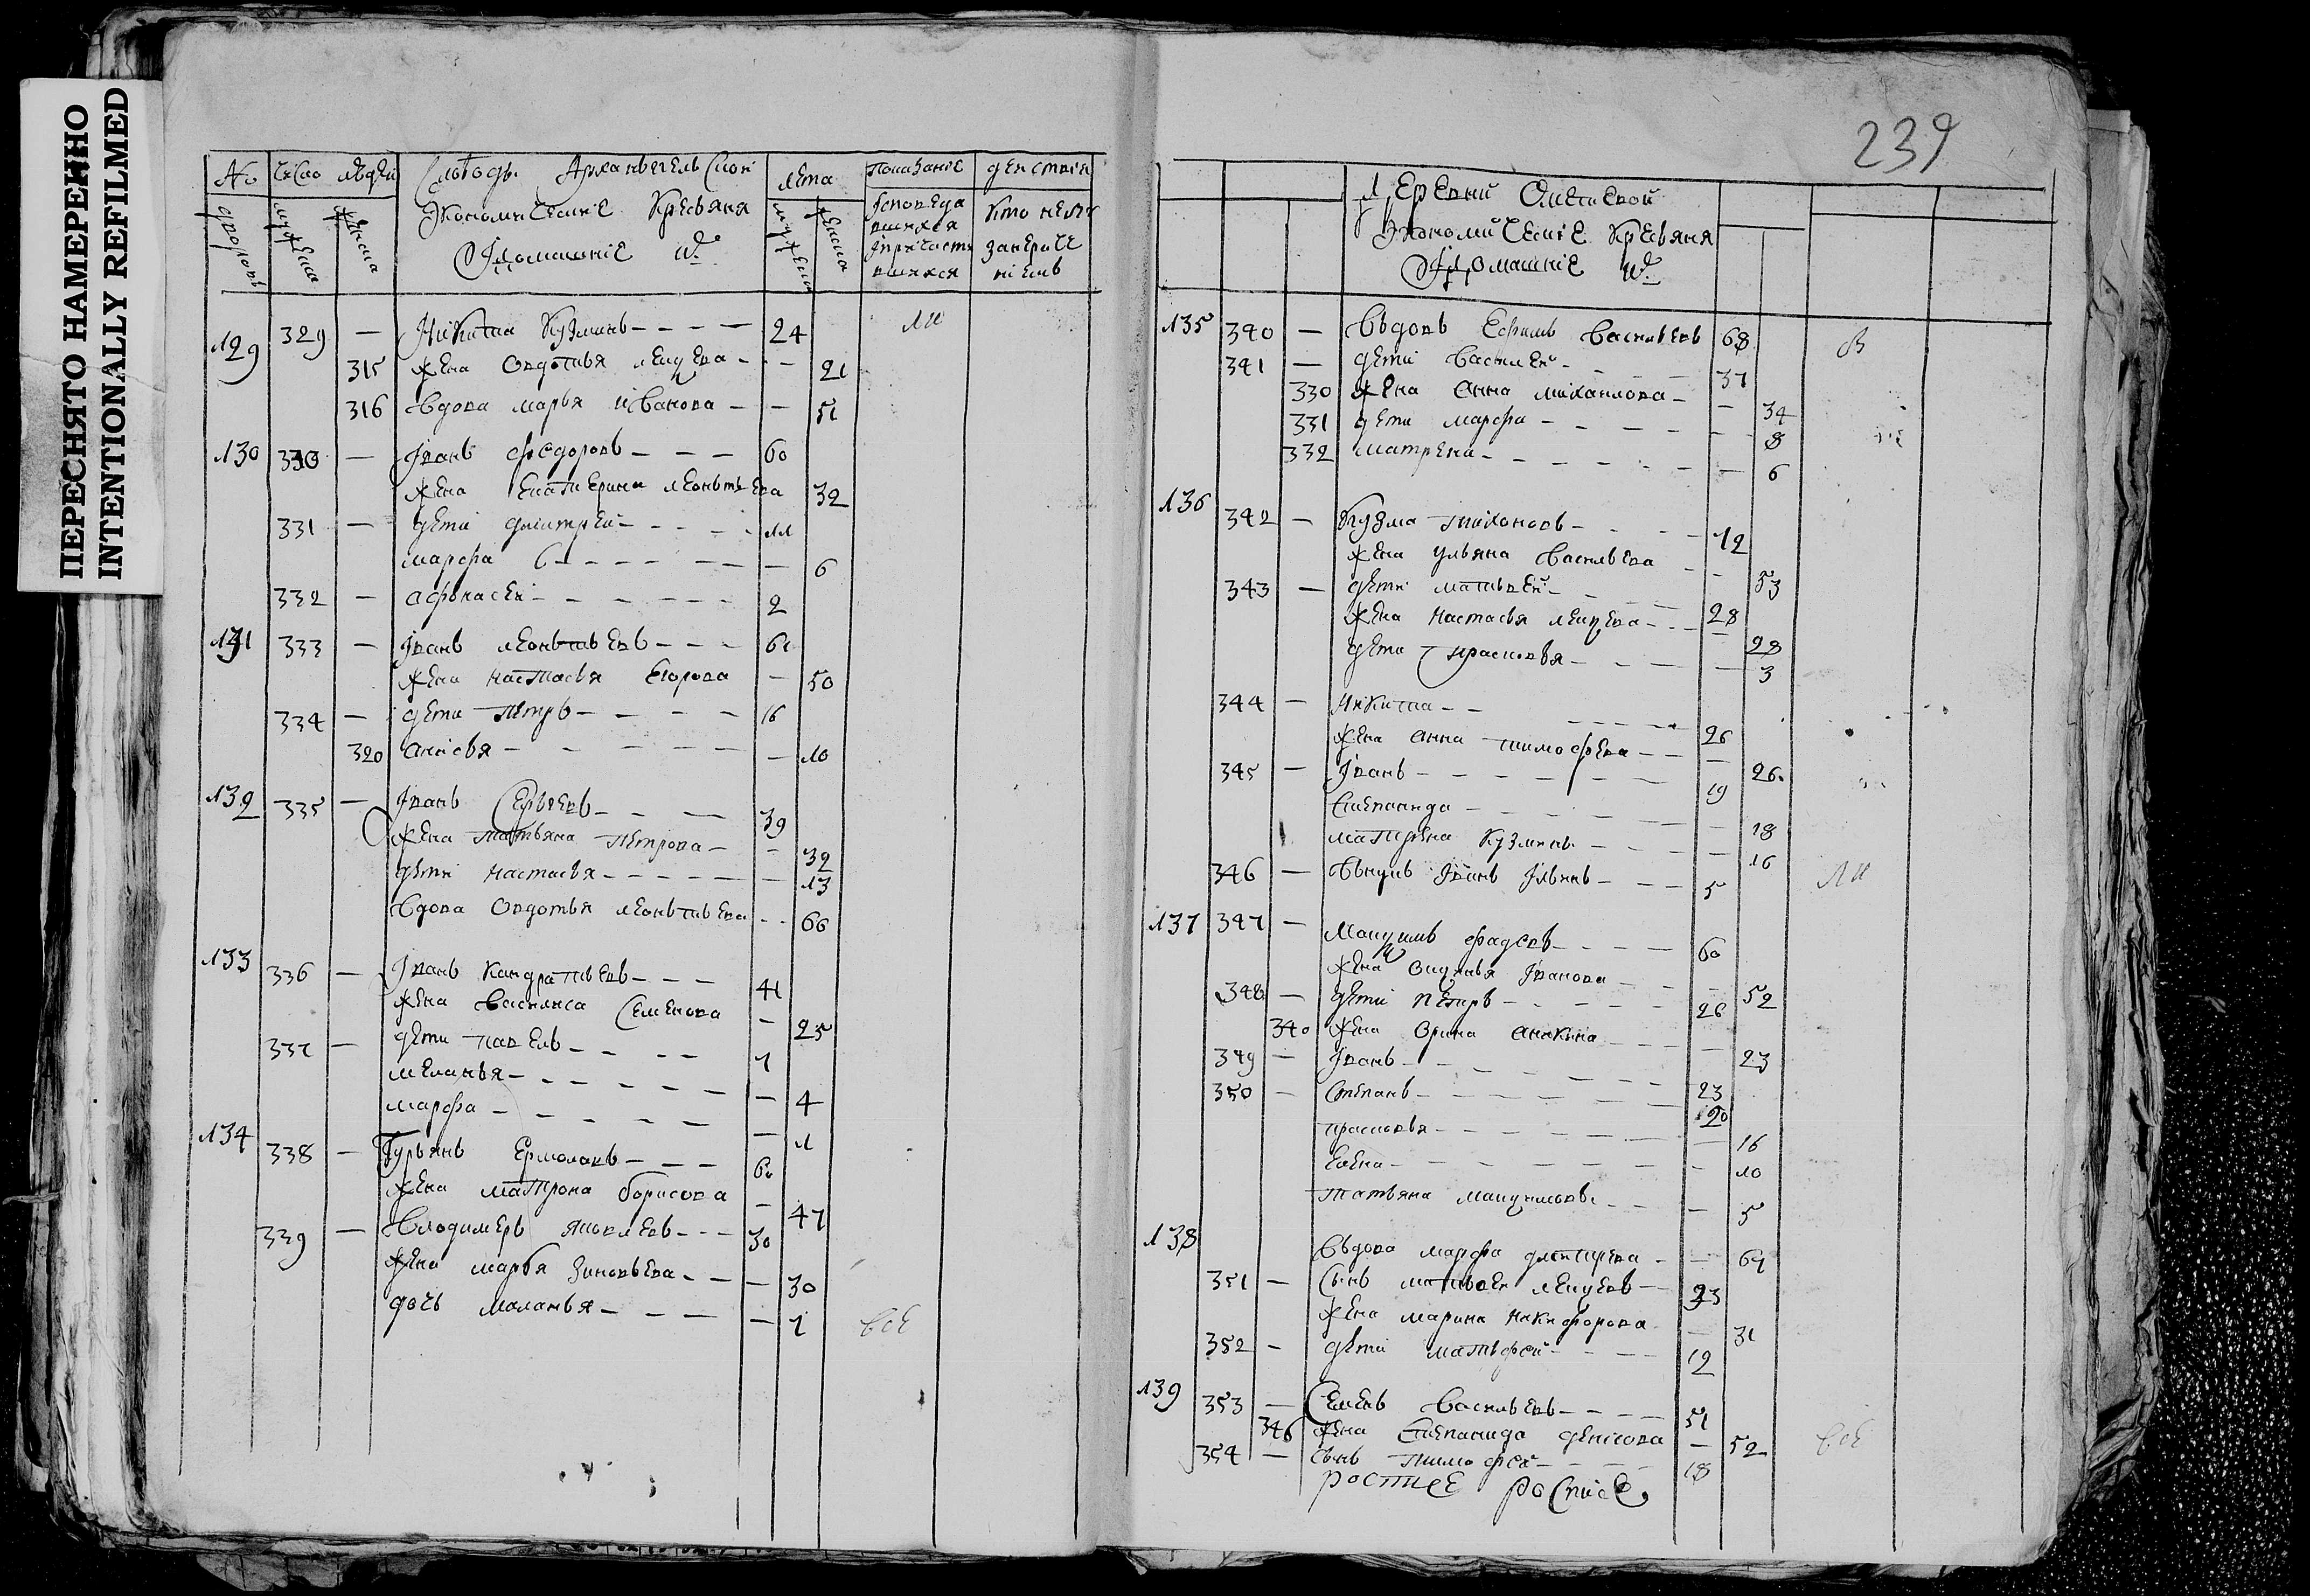 ПЕРЕСНЯТО НАМЕРЕННО
INTENTIONALLY REFILMED
№ число людей Слободы Архангельской лета показание действия
Экономические Кресьяня
дворовъ мужеска женска мужеска женска исповеда кто не
вшихся
Їдомашніе їхъ
129 329 — Никита Кузминъ 24
315 жена Овдотья 21
316 вдова марья иванова — 51
130 330 — Їванъ федоровъ 60
жена Екатерина леонтьева 32
331 — дети дмитрей 11
марфа — 6
332 — афонасей 2
131 333 — Їванъ леонтьевъ 60
жена настасья Егорова — 50
334 — дети петръ 16
320 анисья — 10
132 335 — Їванъ Сергеевъ 39
жена татьяна петрова — 32
дети настасья — 13
вдова Овдотья леонтьева 60
133 336 — Їванъ кандратьевъ 41
жена василиса Семенова — 25
337 — дети павелъ 7
меланья — 4
марфа — 1
134 338 — Гурьянъ Ермолаевъ 60
жена матрона борисова — 47
339 — владимеръ яковлевъ 30
жена марья зиновьева — 30
дочь маланья — 1 все
239
Деревни
Экономические Кресьяня
Їдомашніе їхъ
135 340 — вдовъ Ефимъ васильевъ 68
341 — дети василей 37
330 жена анна михайлова — 34
331 дети марфа — 8
332 матрена — 6
136 342 — Кузма тихоновъ 12
жена ульяна васильева — 53
343 — дети матвей 28
жена настасья — 28
дети прасковья — 3
344 — никита 26
жена анна тимофеева — 26
345 — Їванъ 19
степанида — 18
матрена кузмины — 16
346 — внукъ Їванъ Їльинъ 5
137 347 — фадеевъ 60
жена Їванова — 52
348 — дети петръ 26
340 жена орина аникина — 23
349 — Їванъ 23
350 — степанъ 20
прасковья — 16
елена — 10
татьяна — 5
138 вдова марфа дмитрева — 64
351 — сынъ матвей 23
жена марина никифорова — 31
352 — дети матьфей 12
139 353 — Семенъ васильевъ 51
346 жена степанида денисова — 52 все
354 — сынъ тимофей 18